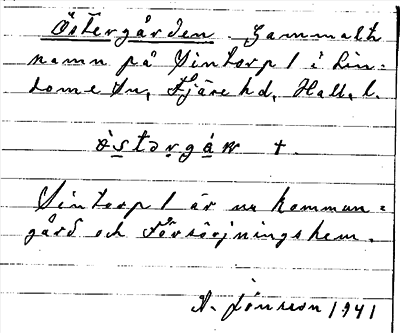 Östergården. Gammalt
namn på Sintorp 1 i Lin-
dome sn, Fjäre hd, Hall. l.
östərgáṛn +.
Sintorp 1 är nu kommun-
gård och Försörjningshem.
A. Jönsson 1941